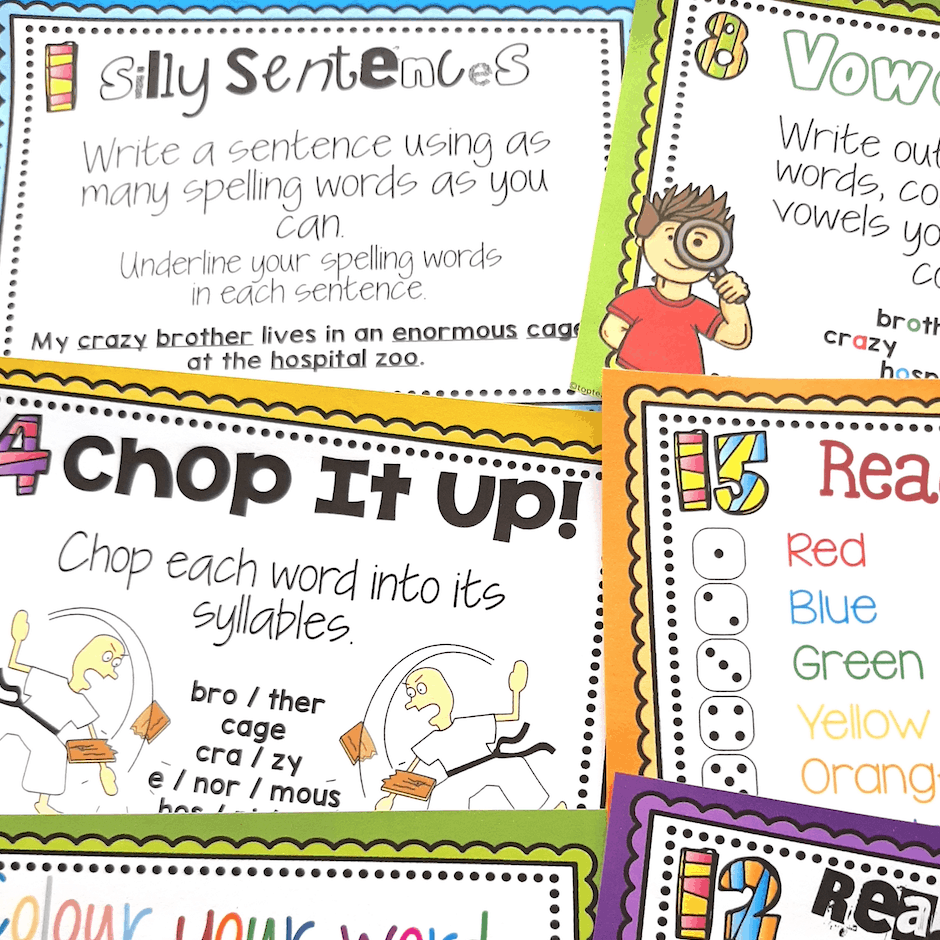 1 Silly Sentences
Write a sentence using as
many spelling words as you
can.
Underline your spelling words
in each sentence.
My crazy brother lives in an enormous cage
at the hospital zoo.
8 Vow
Write out
words, co
vowels yo
co
broth
crazy
hosp
©topte
4 Chop It Up!
Chop each word into its
syllables.
bro / ther
cage
cra / zy
e / nor / mous
15 Rea
Red
Blue
Green
Yellow
Orang
Colour your word
12 Rea